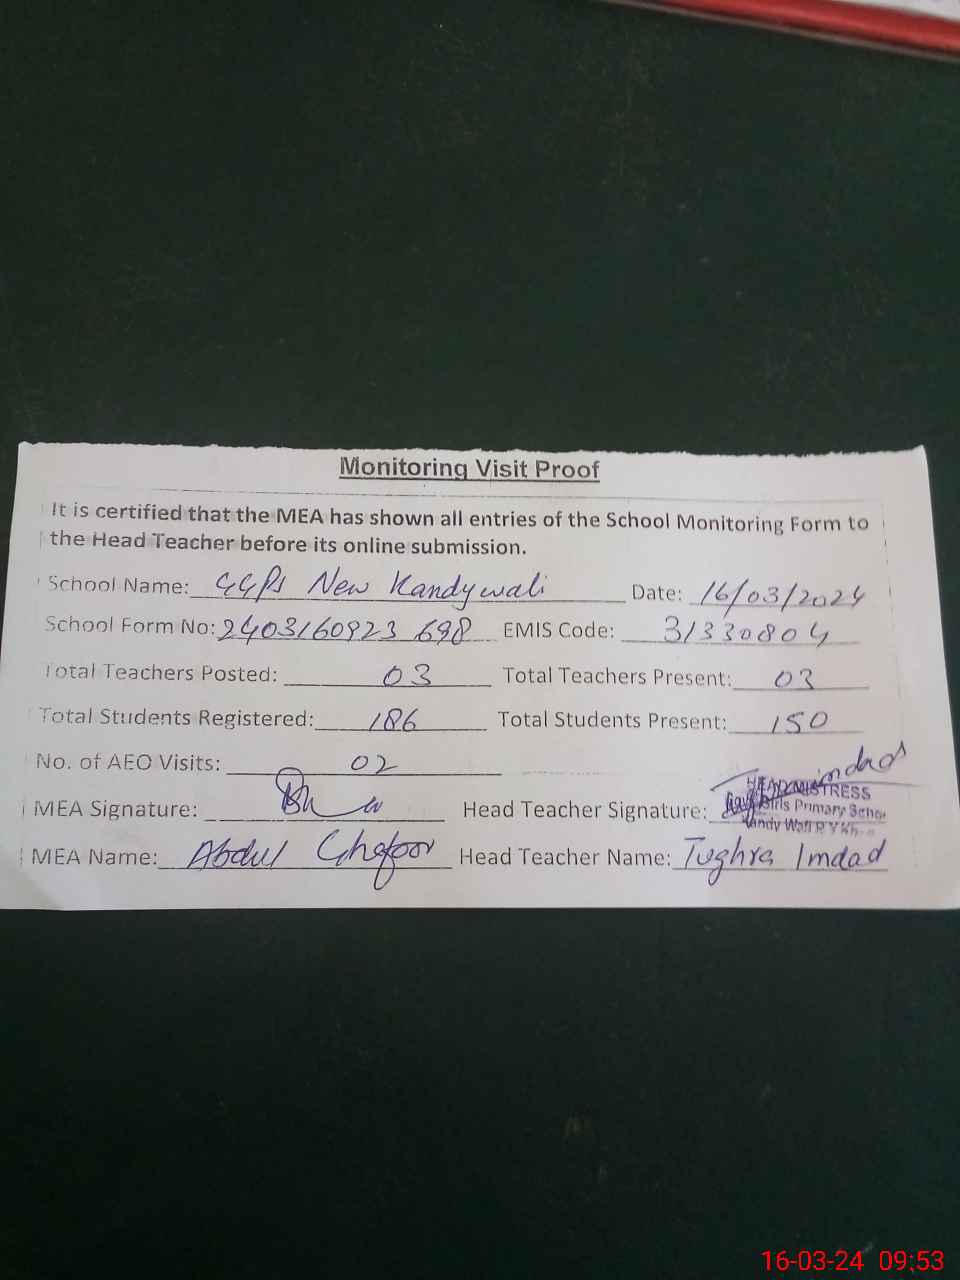 Monitoring Visit Proof
It is certified that the MEA has shown all entries of the School Monitoring Form to
the Head Teacher before its online submission.
School Name: GGPS New Kandywali Date: 16/03/2024
School Form No: 2403160923698 EMIS Code: 31330804
Total Teachers Posted: 03 Total Teachers Present: 03
Total Students Registered: 186 Total Students Present: 150
No. of AEO Visits: 02
MEA Signature: Head Teacher Signature: Imdad
HEADMISTRESS
Girls Primary School
Kandy Wali R Y Khan
MEA Name: Abdul Ghafoor Head Teacher Name: Tughra Imdad
16-03-24 09:53